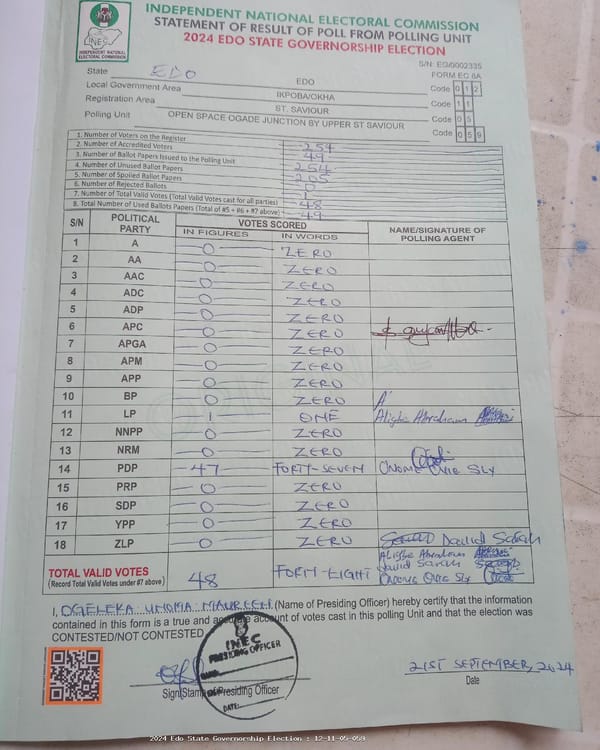 INEC
INDEPENDENT NATIONAL
ELECTORAL COMMISSION
INDEPENDENT NATIONAL ELECTORAL COMMISSION
STATEMENT OF RESULT OF POLL FROM POLLING UNIT
2024 EDO STATE GOVERNORSHIP ELECTION
S/N: EG/0002335
FORM EC 8A
State EDO
EDO Code 0 1 2
Local Government Area IKPOBA/OKHA Code 1 1
Registration Area ST. SAVIOUR Code 0 5
Polling Unit OPEN SPACE OGADE JUNCTION BY UPPER ST SAVIOUR Code 0 5 9
1. Number of Voters on the Register 254
2. Number of Accredited Voters 49
3. Number of Ballot Papers Issued to the Polling Unit 254
4. Number of Unused Ballot Papers 205
5. Number of Spoiled Ballot Papers 0
6. Number of Rejected Ballots 1
7. Number of Total Valid Votes (Total Valid Votes cast for all parties) 48
8. Total Number of Used Ballots Papers (Total of #5 + #6 + #7 above) 49
S/N POLITICAL PARTY VOTES SCORED NAME/SIGNATURE OF POLLING AGENT
IN FIGURES IN WORDS
1 A 0 ZERO
2 AA 0 ZERO
3 AAC 0 ZERO
4 ADC 0 ZERO
5 ADP 0 ZERO
6 APC 0 ZERO
7 APGA 0 ZERO
8 APM 0 ZERO
9 APP 0 ZERO
10 BP 0 ZERO
11 LP 1 ONE Aligbe Abraham
12 NNPP 0 ZERO
13 NRM 0 ZERO
14 PDP 47 FORTY-SEVEN ONOME OVIE SLY
15 PRP 0 ZERO
16 SDP 0 ZERO
17 YPP 0 ZERO
18 ZLP 0 ZERO David Sarah
TOTAL VALID VOTES
(Record Total Valid Votes under #7 above) 48 FORTY-EIGHT
Aligbe Abraham
David Sarah
Onome Ovie Sly
I, OGELEKA UNOMA MAUREEN (Name of Presiding Officer) hereby certify that the information
contained in this form is a true and accurate account of votes cast in this polling Unit and that the election was
CONTESTED/NOT CONTESTED
INEC
PRESIDING OFFICER
DATE:
Sign/Stamp of Presiding Officer
21ST SEPTEMBER, 2024
Date
2024 Edo State Governorship Election : 12-11-05-059